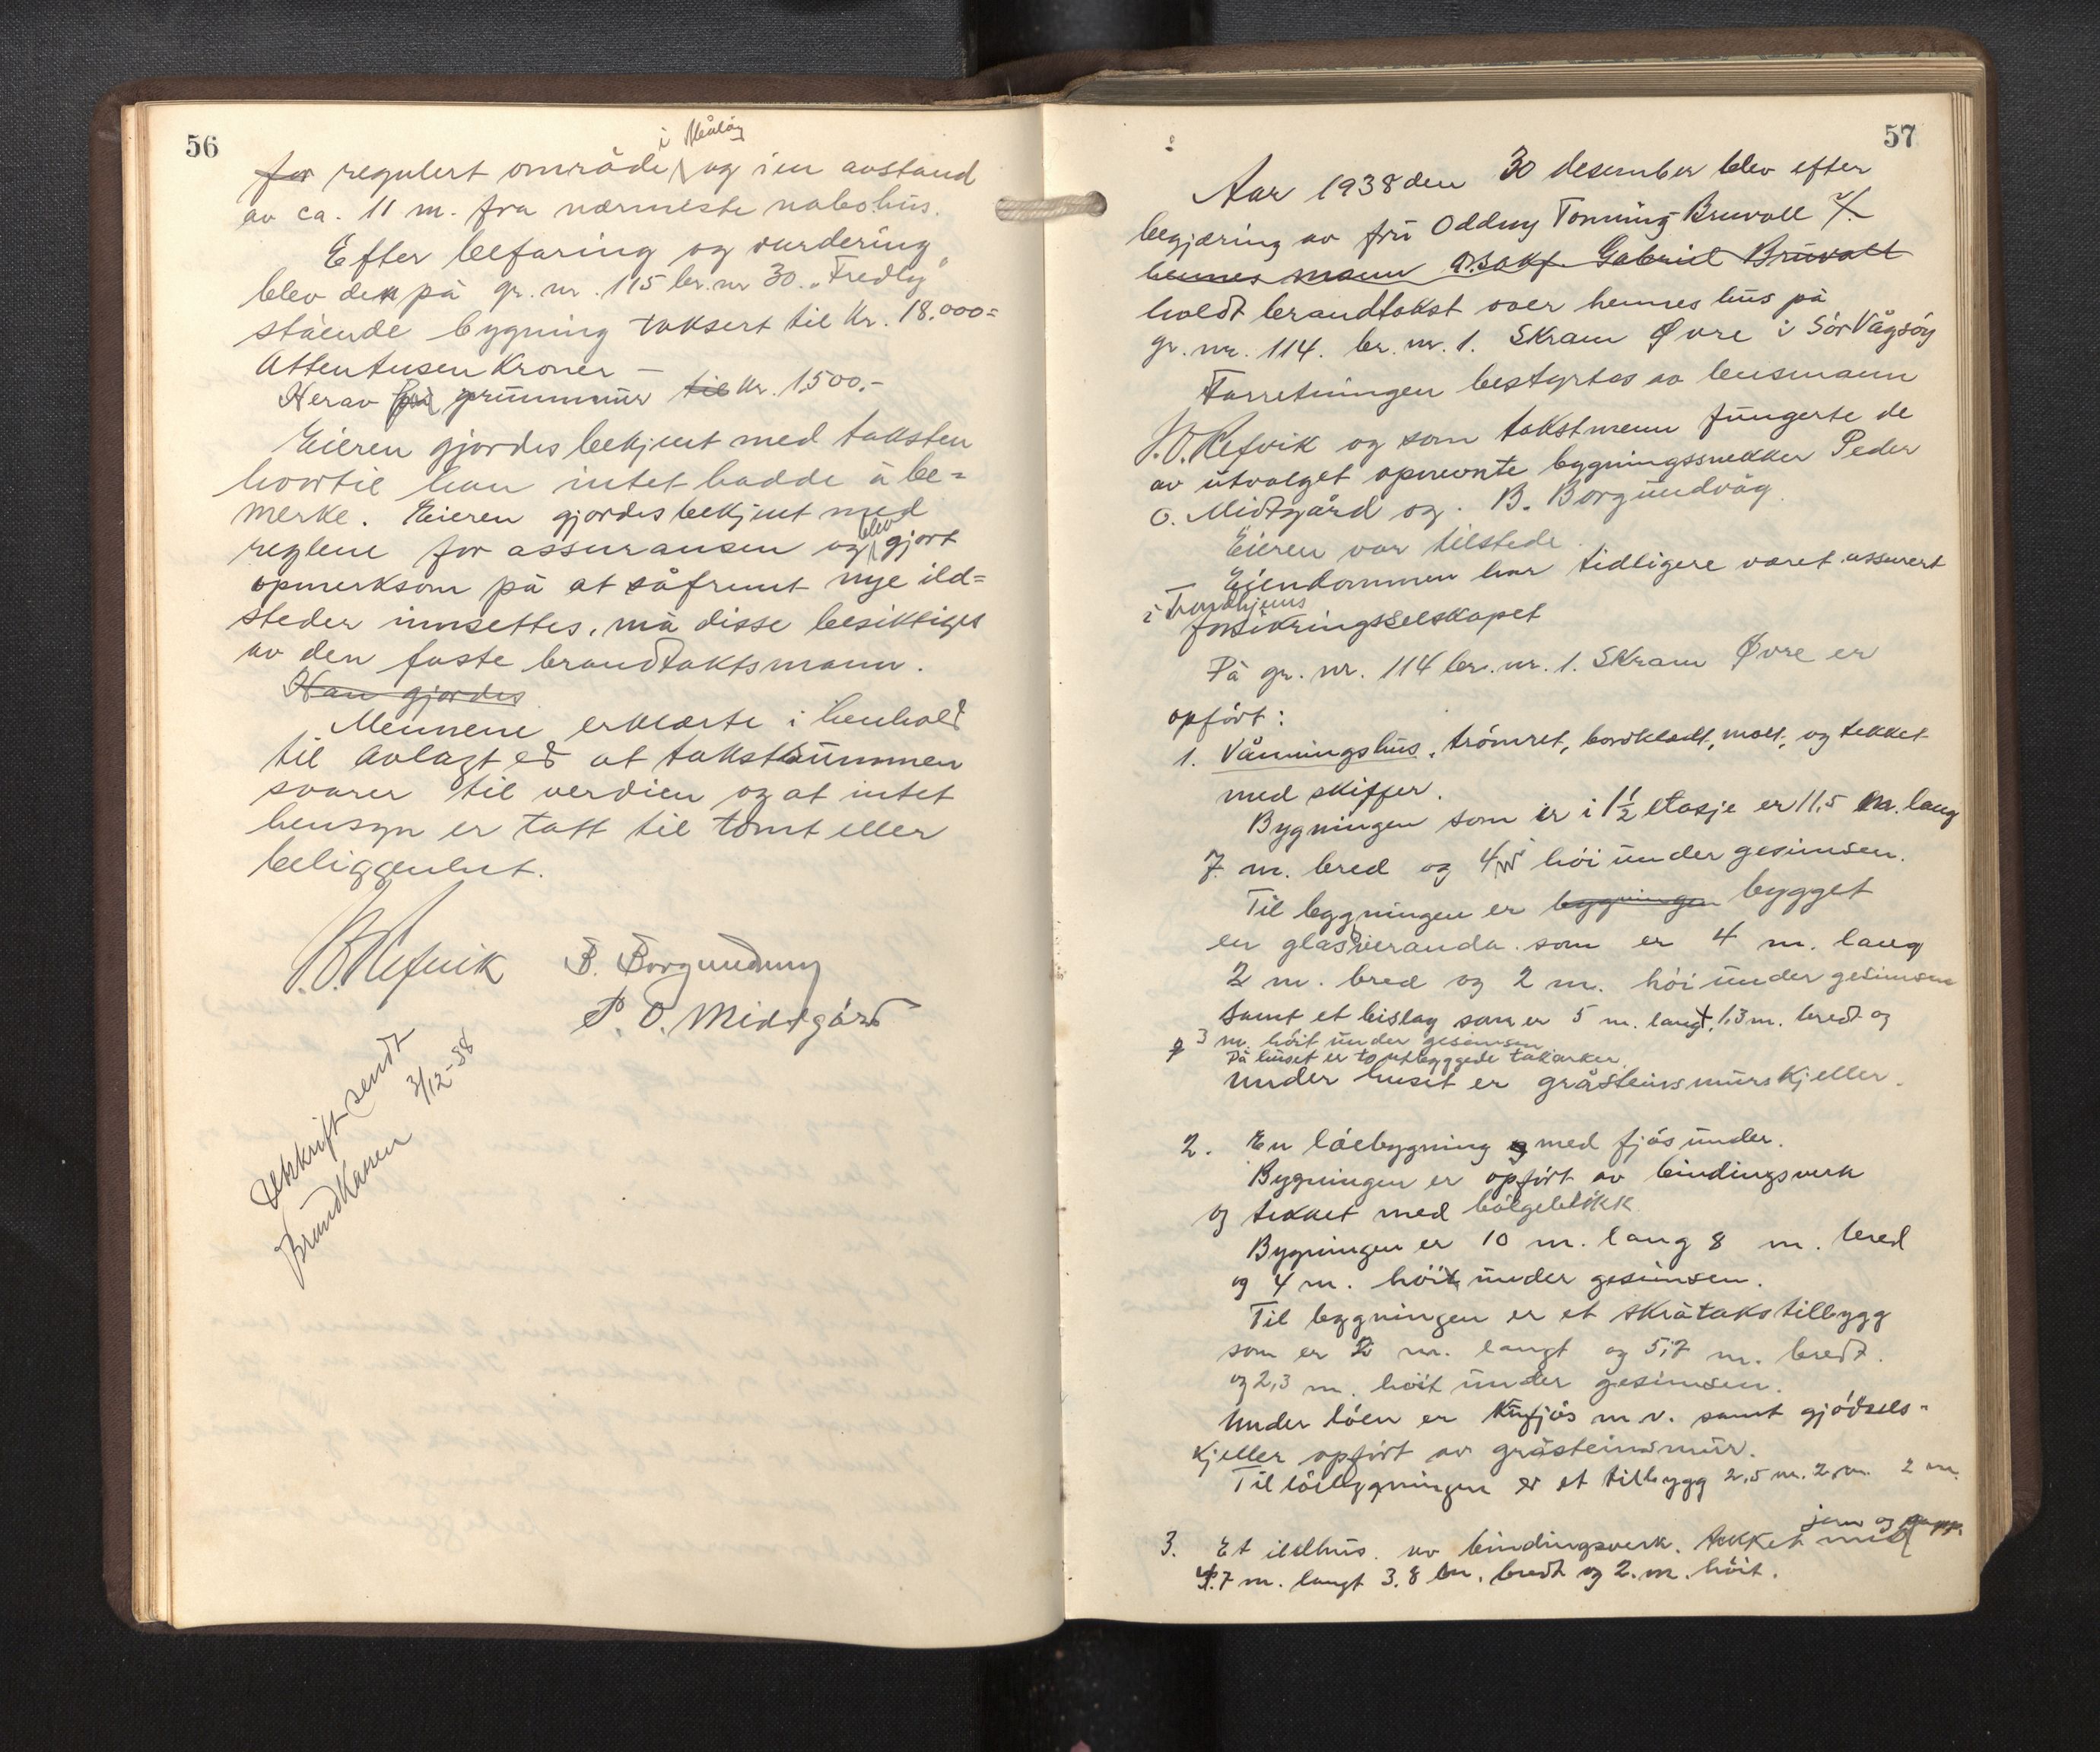 56
i Måløy
for regulert område og i en avstand
av ca. 11 m. fra nærmeste nabohus.
Efter befaring og vurdering
blev den på gr. nr. 115 br. nr 30 „Fredly"
stående bygning taksert til Kr. 18.000=
Attentusen Kroner —
Herav på grunnmur til Kr. 1500.-
Eieren gjordes bekjent med taksten
hvortil han intet hadde å be=
merke. Eieren gjordes bekjent med
reglene for assuransen og blev gjort
opmerksom på at såfremt nye ild=
steder innsettes, må disse besiktiges
av den faste brandtakstmann.
Han gjordes
Mennene erklærte i henhold
til avlagt ed at takstsummen
svarer til verdien og at intet
hensyn er tatt til tomt eller
beliggenhet.
J.O. Refvik B. Borgundvåg
P. O. Midtgård
Utskrift sendt
Brandkassen 3/12-38
57
Aar 1938 den 30 desember blev efter
begjæring av fru Oddny Tonning Bruvoll v/
hennes mann o.r.sakf. Gabriel Bruvoll
holdt brandtakst over hennes hus på
gr. nr. 114. br. nr. 1. Skram Øvre i Sør Vågsøy
Forretningen bestyrtes av lensmann
J.O. Refvik og som takstmenn fungerte de
av utvalget opnevnte bygningssnekker Peder
O. Midtgård og B. Borgundvåg.
Eieren var tilstede.
Eiendommen har tidligere været assurert
i Trondhjems
forsikringsselskapet
På gr. nr. 114 br. nr. 1. Skram Øvre er
opført:
1. Våningshus, tømret, bordkledt, malt, og tekket
med skiffer.
Bygningen som er i 1½ etasje er 11,5 m. lang
7 m. bred og 4 m høi under gesimsen.
Til bygningen er bygningen bygget
en glasveranda som er 4 m. lang
2 m. bred og 2 m. høi under gesimsen
samt et bislag som er 5 m. langt, 1,3 m. bredt og
3 m. høit under gesimsen
På huset er to utbyggede takarker.
Under huset er gråsteinsmurs kjeller.
2. En løebygning og med fjøs under.
Bygningen er opført av bindingsverk
og tekket med bølgeblikk
Bygningen er 10 m. lang 8 m. bred
og 4 m. høit under gesimsen.
Til bygningen er et skråtakstilbygg
som er 2 m. langt og 5,7 m. bredt.
og 2,3 m. høit under gesimsen.
Under løen er Kufjøs m.v. samt gjødsels-
kjeller opført av gråsteinsmur.
Til løebygningen er et tilbygg 2,5 m. 2 m. 2 m.
3. Et ildhus av bindingsverk. tekket med jern og papp
4.7 m. langt 3.8 m. bredt og 2. m. høit.